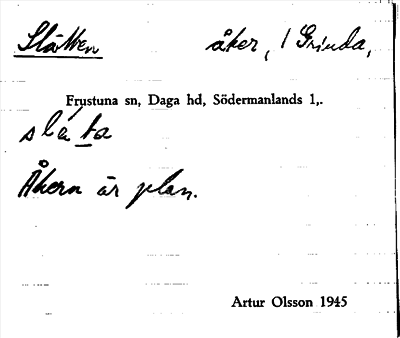 Slätten åker, 1 Grinda,
Frustuna sn, Daga hd, Södermanlands l,.
slä́ta
Åkern är plan.
Artur Olsson 1945